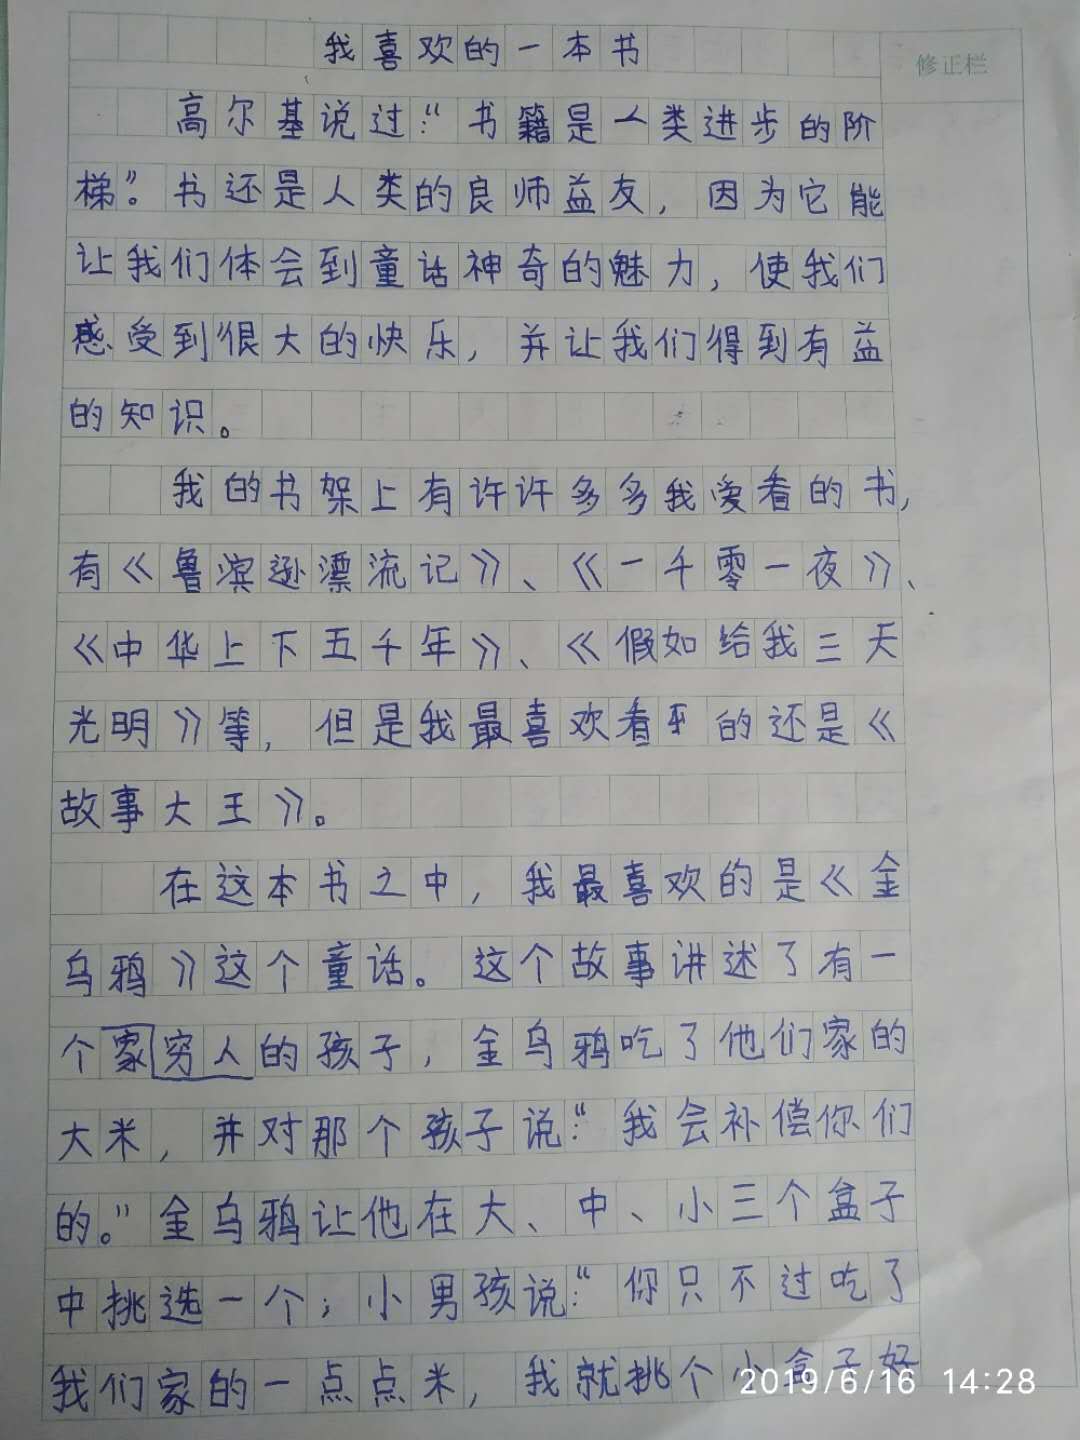 我喜欢的一本书
修正栏
高尔基说过：“书籍是人类进步的阶
梯”。书还是人类的良师益友，因为它能
让我们体会到童话神奇的魅力，使我们
感受到很大的快乐，并让我们得到有益
的知识。
我的书架上有许许多多我爱看的书，
有《鲁滨逊漂流记》、《一千零一夜》、
《中华上下五千年》、《假如给我三天
光明》等，但是我最喜欢看的还是《
故事大王》。
在这本书之中，我最喜欢的是《金
乌鸦》这个童话。这个故事讲述了有一
个家穷人的孩子，金乌鸦吃了他们家的
大米，并对那个孩子说：“我会补偿你们
的。”金乌鸦让他在大、中、小三个盒子
中挑选一个；小男孩说：“你只不过吃了
我们家的一点点米，我就挑个小盒子好
2019/6/16 14:28